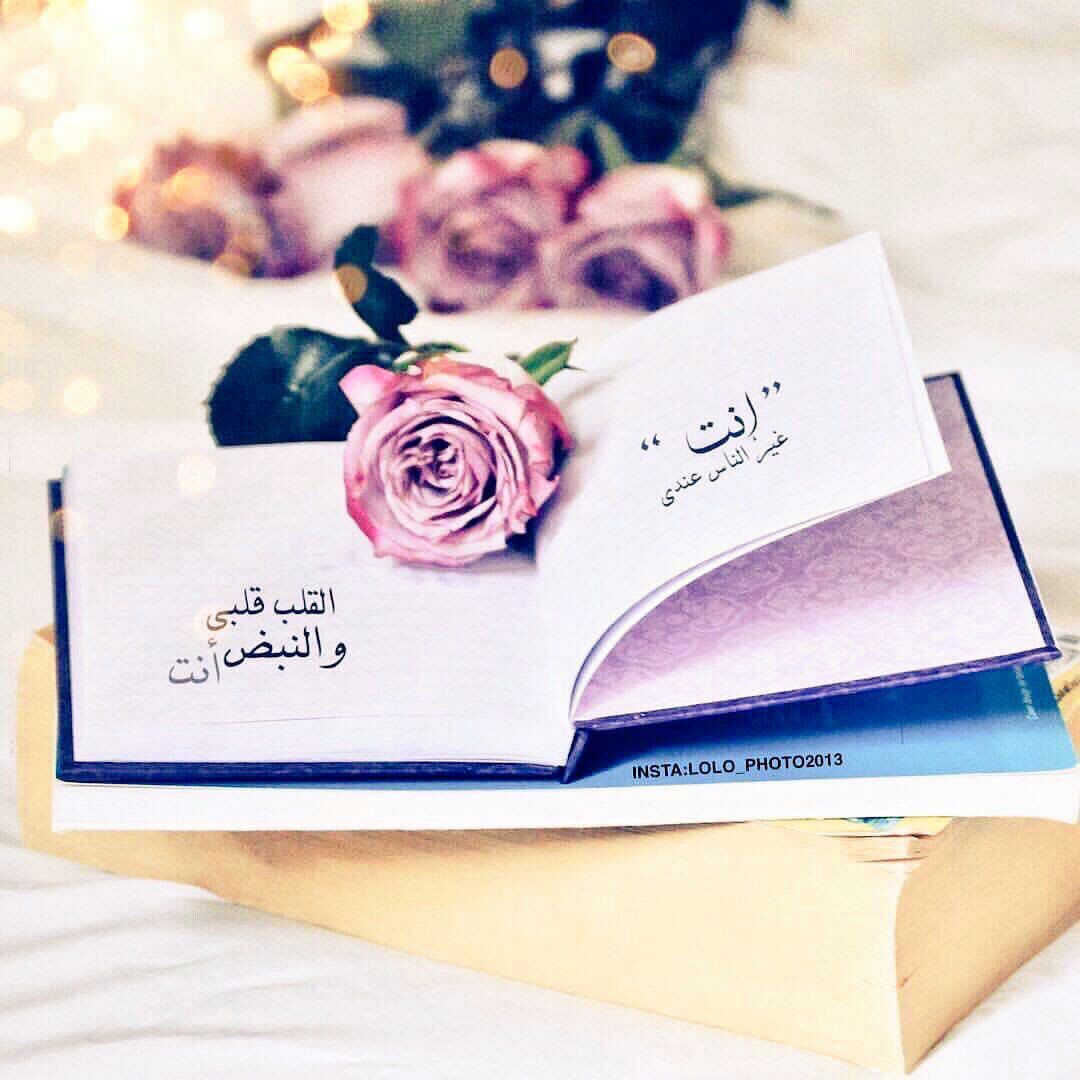 ”انت“
غيرُ الناس عندي
القلب قلبي
والنبض أنت
INSTA:LOLO_PHOTO2013